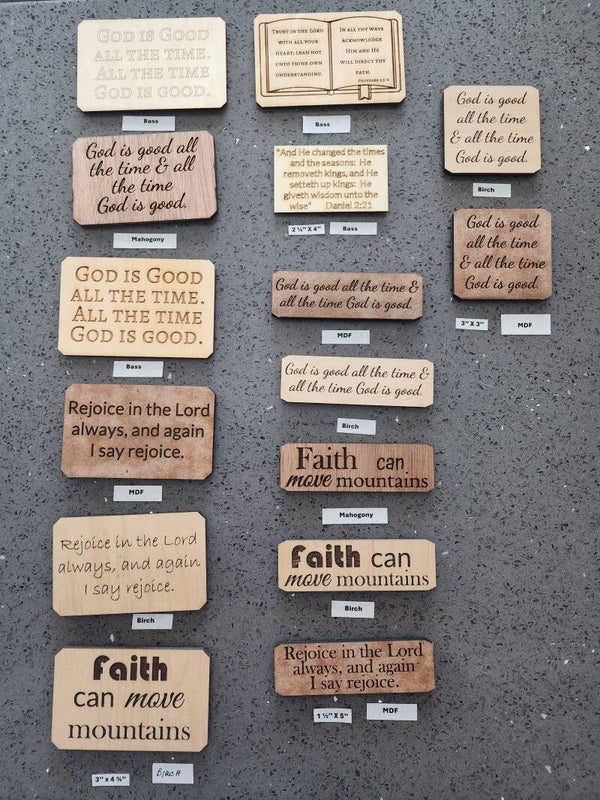 God is Good
all the time.
All the time
God is good.
Bass
God is good all
the time & all
the time
God is good.
Mahogony
God is Good
all the time.
All the time
God is good.
Bass
Rejoice in the Lord
always, and again
I say rejoice.
MDF
Rejoice in the Lord
always, and again
I say rejoice.
Birch
Faith
can move
mountains
3" x 4 ¾"
BIRCH
Trust in the Lord
with all your
heart; lean not
unto thine own
understanding.
In all thy ways
acknowledge
Him and He
will direct thy
path.
Proverbs 3:5-6
Bass
"And He changed the times
and the seasons: He
removeth kings, and He
setteth up kings: He
giveth wisdom unto the
wise" Daniel 2:21
2 ¼" X 4"
Bass
God is good all the time &
all the time God is good.
MDF
God is good all the time &
all the time God is good.
Birch
Faith can
move mountains
Mahogony
Faith can
move mountains
Birch
Rejoice in the Lord
always, and again
I say rejoice.
1 ½" X 5"
MDF
God is good
all the time
& all the time
God is good.
Birch
God is good
all the time
& all the time
God is good.
3" X 3"
MDF